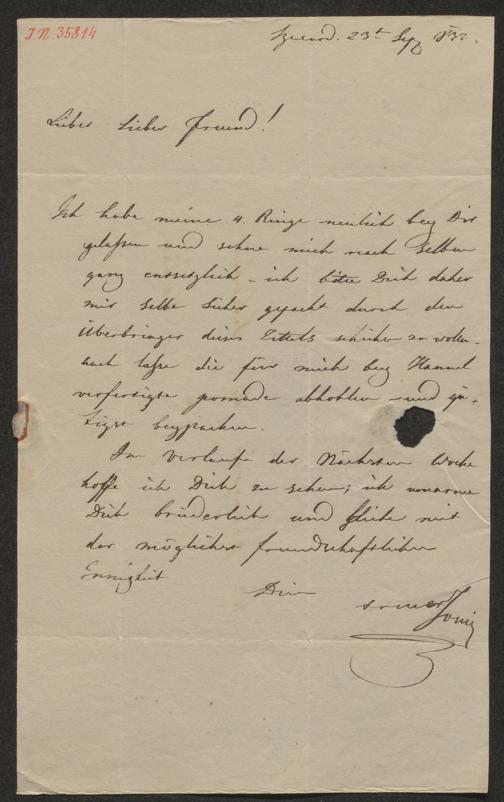 I.N. 35814
23t Sep 1832.
Lieber lieber Freund!
Ich habe meine 4. Ringe neulich bey Dir
gelassen und sehne mich nach selben
ganz entsetzlich – ich bitte Dich daher
mir selbe sicher gepackt durch den
Überbringer dieses Zettels schicken zu wollen.
auch lasse die für mich bey Hammel
verfertigte pomade abhohlen und gü-
tigst beypacken.
Im Verlaufe der Nächsten Woche
hoffe ich Dich zu sehen; ich umarme
Dich brüderlich und bleibe mit
der möglichst freundschaftlichen
Innigkeit
Dein